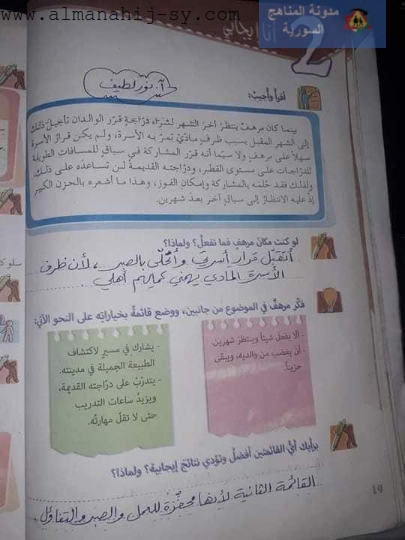 www.almanahij-sy.com
مدونة المناهج
السورية
2
أنا إيجابي
أ. نور لطيف
أقرأ وأجيب:
بينما كان مرهف ينتظر آخر الشهر لشراء درّاجة قرّر الوالدان تأجيل ذلك
إلى الشهر المقبل بسبب ظرف مادّيّ تمرّ به الأسرة، ولم يكن قرار الأسرة
سهلاً على مرهف ولا سيّما أنه قرّر المشاركة في سباق للمسافات الطويلة
للدرّاجات على مستوى القطر، ودرّاجته القديمة لن تساعده على ذلك،
ولذلك فقد حلمه بالمشاركة وإمكان الفوز، وهذا ما أشعره بالحزن الكبير
إذ عليه الانتظار إلى سباق آخر بعد شهرين.
لو كنت مكان مرهف فما تفعل؟ ولماذا؟
أتقبّل قرار أسرتي وأتحلّى بالصبر، لأن ظرف
الأسرة المادي
أهلي
فكّر مرهف في الموضوع من جانبين، ووضع قائمةً بخياراته على النحو الآتي:
- ألا يفعل شيئاً وينتظر شهرين.
- أن يغضب من والديه، ويبقى
حزيناً.
- يشارك في مسيرٍ لاكتشاف
الطبيعة الجميلة في مدينته.
- يتدرّب على درّاجته القديمة،
ويزيد ساعات التدريب
حتى لا تقلّ مهارته.
برأيك أيّ القائمتين أفضل وتؤدي نتائج إيجابية؟ ولماذا؟
القائمة الثانية لأنها محفّزة للعمل والصبر والتفاؤل.
14